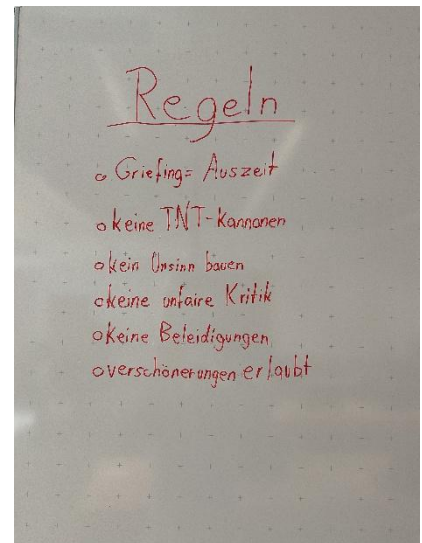 Regeln
o Griefing= Auszeit
o keine TNT-Kannonen
o kein Unsinn bauen
o keine unfaire Kritik
o Keine Beleidigungen
o verschönerungen erlaubt